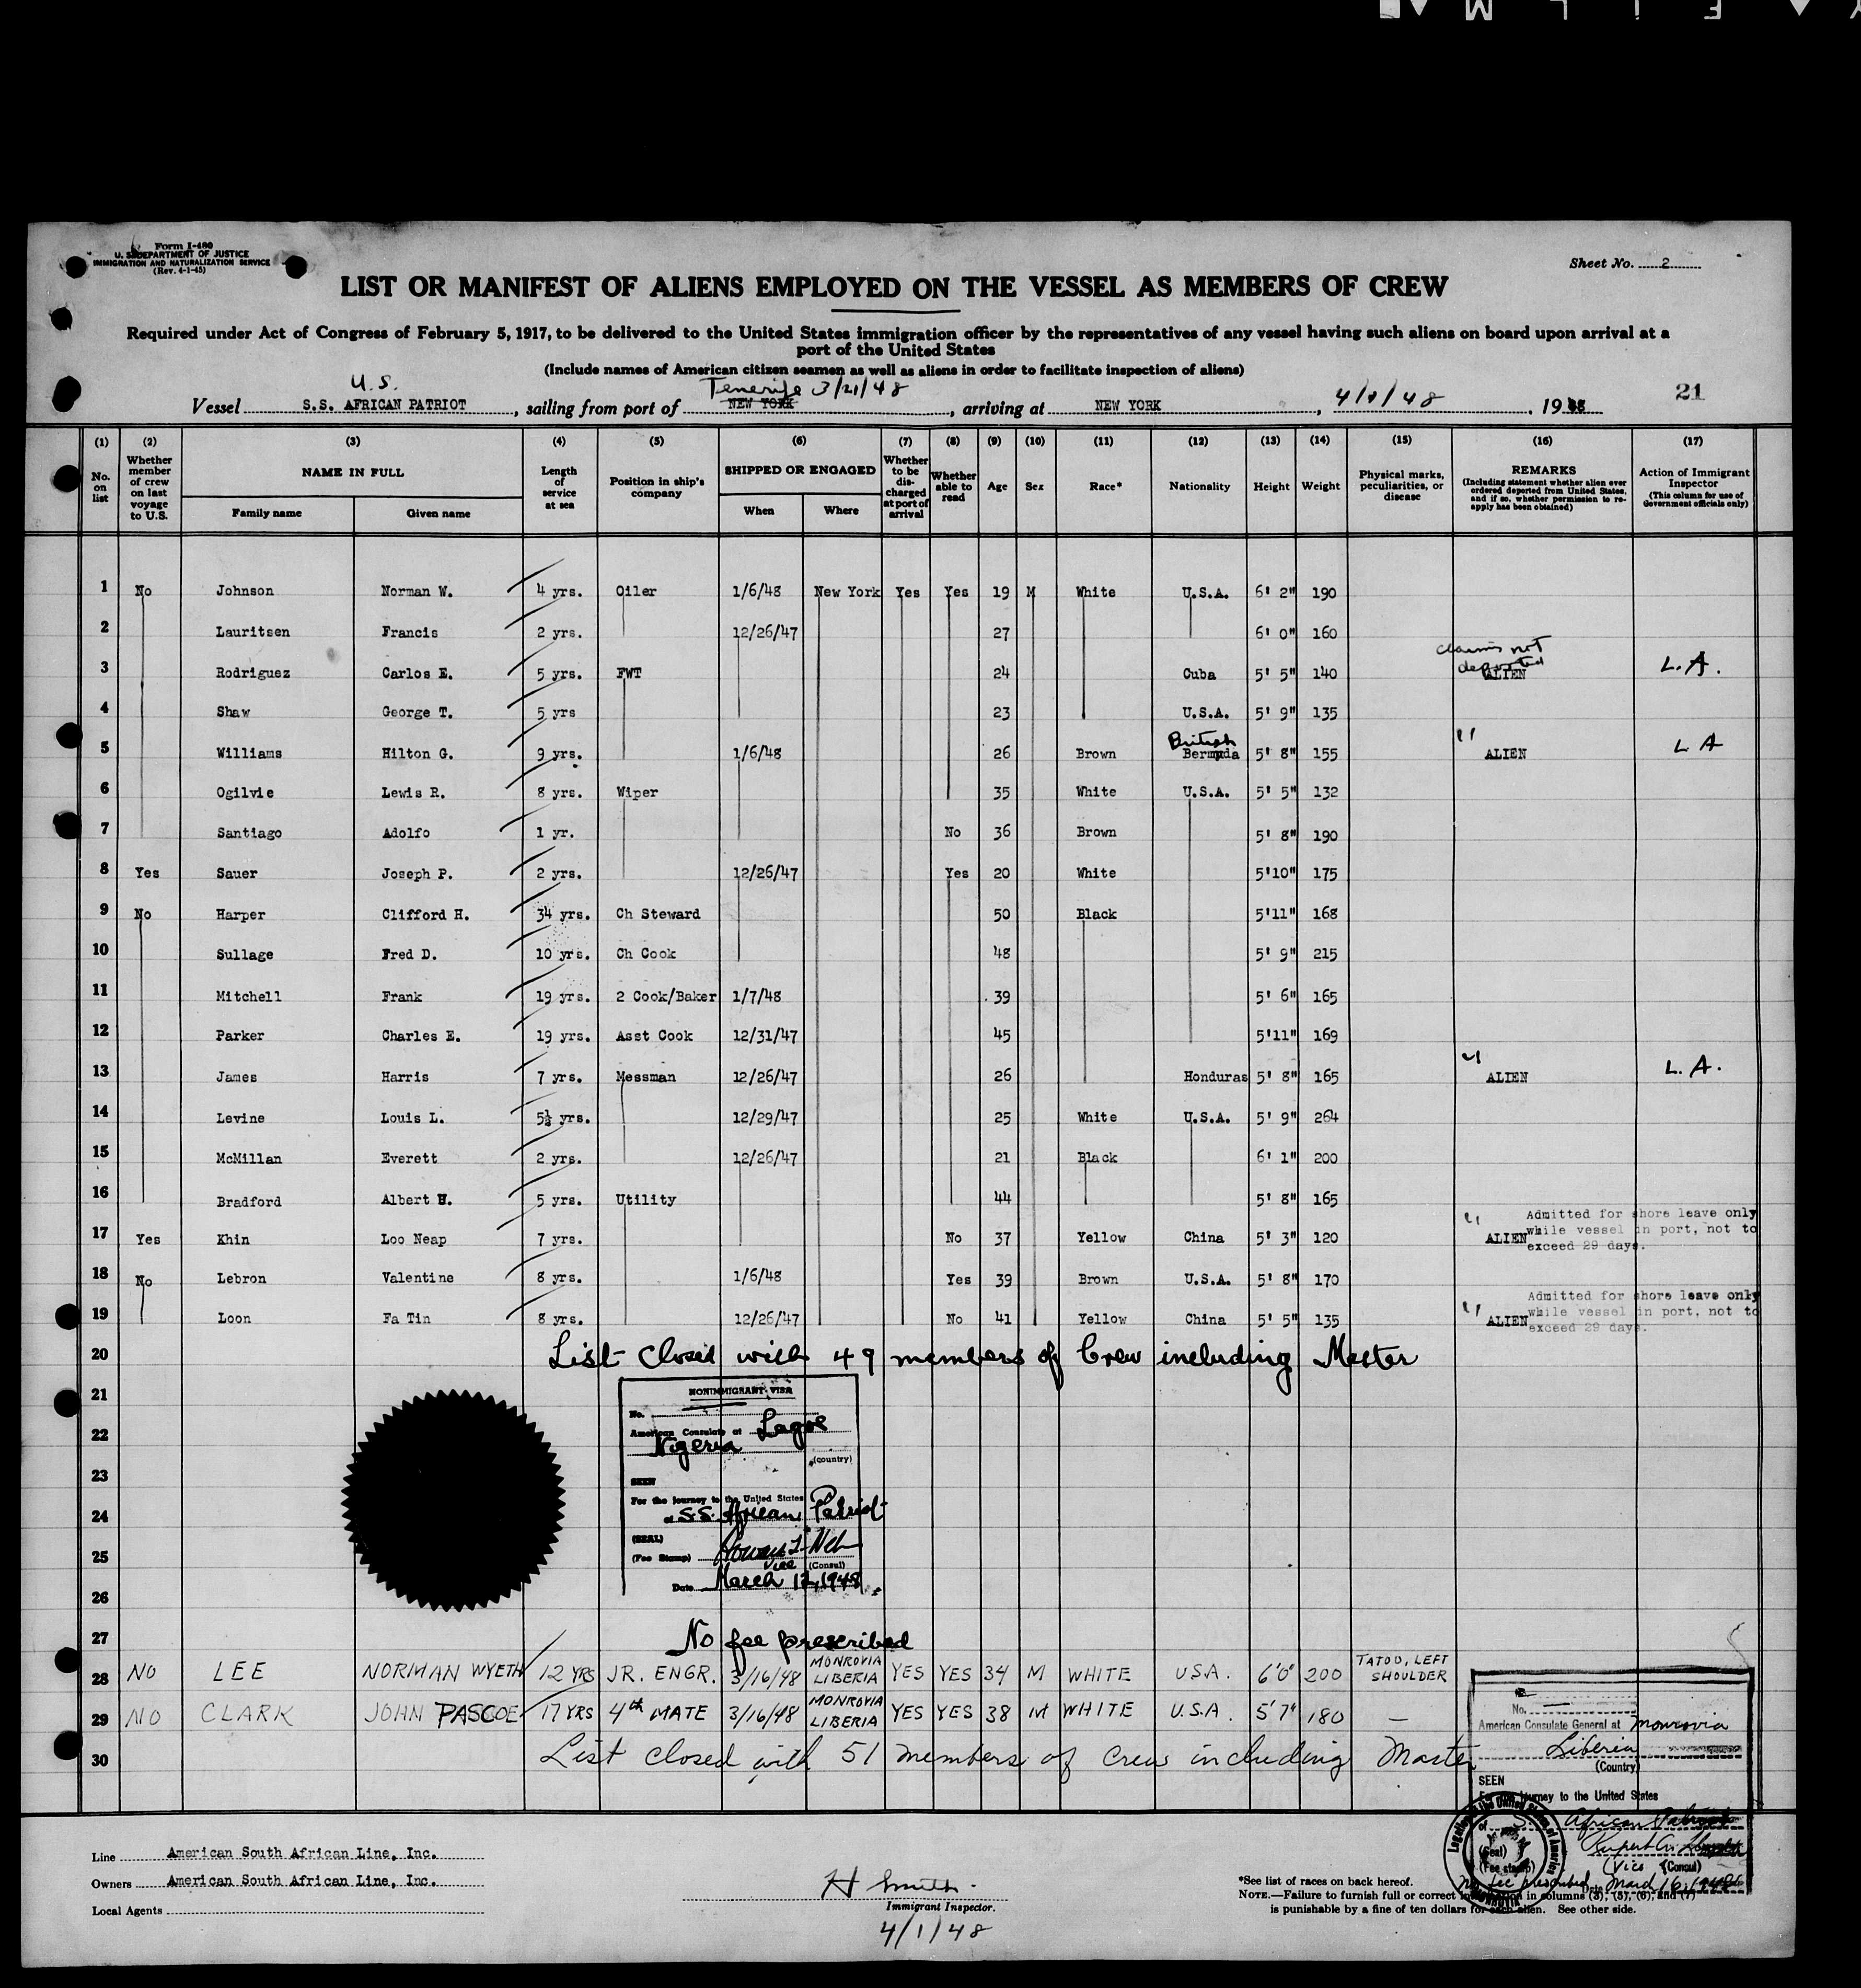 Form I-480
U. S. DEPARTMENT OF JUSTICE
IMMIGRATION AND NATURALIZATION SERVICE
(Rev. 4-1-45)
Sheet No. 2
LIST OR MANIFEST OF ALIENS EMPLOYED ON THE VESSEL AS MEMBERS OF CREW
Required under Act of Congress of February 5, 1917, to be delivered to the United States immigration officer by the representatives of any vessel having such aliens on board upon arrival at a
port of the United States
(Include names of American citizen seamen as well as aliens in order to facilitate inspection of aliens)
U.S. Tenerife 3/21/48
Vessel S.S. AFRICAN PATRIOT, sailing from port of NEW YORK, arriving at NEW YORK, 4/1/48, 1948 21
(1) (2) (3) (4) (5) (6) (7) (8) (9) (10) (11) (12) (13) (14) (15) (16) (17)
No. on list
Whether member of crew on last voyage to U.S.
NAME IN FULL
Family name
Given name
Length of service at sea
Position in ship's company
SHIPPED OR ENGAGED
When
Where
Whether to be discharged at port of arrival
Whether able to read
Age
Sex
Race*
Nationality
Height
Weight
Physical marks, peculiarities, or disease
REMARKS
(Including statement whether alien ever ordered deported from United States, and if so, whether permission to reapply has been obtained)
Action of Immigrant Inspector
(This column for use of Government officials only)
1 No Johnson Norman W. 4 yrs. Oiler 1/6/48 New York Yes Yes 19 M White U.S.A. 6' 2" 190
2 Lauritsen Francis 2 yrs. 12/26/47 27 6' 0" 160
claims not
deported
3 Rodriguez Carlos E. 5 yrs. FWT 24 Cuba 5' 5" 140 ALIEN L.A.
4 Shaw George T. 5 yrs 23 U.S.A. 5' 9" 135
British
5 Williams Hilton G. 9 yrs. 1/6/48 26 Brown Bermuda 5' 8" 155 " ALIEN L A
6 Ogilvie Lewis R. 8 yrs. Wiper 35 White U.S.A. 5' 5" 132
7 Santiago Adolfo 1 yr. No 36 Brown 5' 8" 190
8 Yes Sauer Joseph P. 2 yrs. 12/26/47 Yes 20 White 5'10" 175
9 No Harper Clifford H. 34 yrs. Ch Steward 50 Black 5'11" 168
10 Sullage Fred D. 10 yrs. Ch Cook 48 5' 9" 215
11 Mitchell Frank 19 yrs. 2 Cook/Baker 1/7/48 39 5' 6" 165
12 Parker Charles E. 19 yrs. Asst Cook 12/31/47 45 5'11" 169
13 James Harris 7 yrs. Messman 12/26/47 26 Honduras 5' 8" 165 " ALIEN L.A.
14 Levine Louis L. 5½ yrs. 12/29/47 25 White U.S.A. 5' 9" 264
15 McMillan Everett 2 yrs. 12/26/47 21 Black 6' 1" 200
16 Bradford Albert H. 5 yrs. Utility 44 5' 8" 165
17 Yes Khin Loo Neap 7 yrs. No 37 Yellow China 5' 3" 120 " ALIEN Admitted for shore leave only while vessel in port, not to exceed 29 days.
18 No Lebron Valentine 8 yrs. 1/6/48 Yes 39 Brown U.S.A. 5' 8" 170
19 Loon Fa Tin 8 yrs. 12/26/47 No 41 Yellow China 5' 5" 135 " ALIEN Admitted for shore leave only while vessel in port, not to exceed 29 days.
20 List closed with 49 members of Crew including Master
21
22
23
24
25
26
27
NONIMMIGRANT VISA
No.
American Consulate at Lagos
Nigeria
(country)
SEEN
For the journey to the United States
S.S. African Patriot
(SEAL)
(Fee Stamp)
Vice (Consul)
Date March 12, 1948
No fee prescribed
28 NO LEE NORMAN WYETH 12 YRS JR. ENGR. 3/16/48 MONROVIA LIBERIA YES YES 34 M WHITE USA. 6'0" 200 TATOO, LEFT SHOULDER
29 NO CLARK JOHN PASCOE 17 YRS 4th MATE 3/16/48 MONROVIA LIBERIA YES YES 38 M WHITE U.S.A. 5'7" 180 —
30 List closed with 51 members of Crew including Master
No.
American Consulate General at Monrovia
Liberia
(Country)
SEEN
For the journey to the United States
of S.S. African Patriot
(Seal)
(Fee stamp)
(Vice Consul)
No fee prescribed Date March 16, 1948
Legation of the United States of America
MONROVIA
Line American South African Line, Inc.
Owners American South African Line, Inc.
Local Agents
H Smith.
Immigrant Inspector.
4/1/48
*See list of races on back hereof.
NOTE.—Failure to furnish full or correct information in columns (3), (5), (6), and (7)
is punishable by a fine of ten dollars for each alien. See other side.